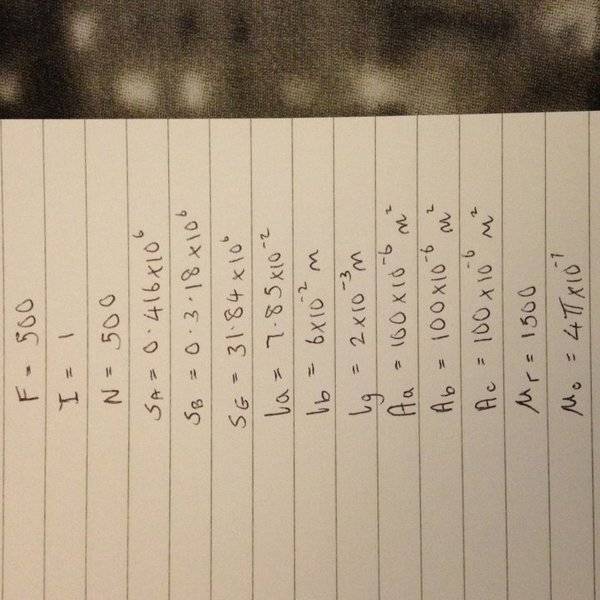 F = 500
I = 1
N = 500
SA = 0.416x10⁶
SB = 0.3.18x10⁶
SG = 31.84x10⁶
la = 7.85x10⁻²
lb = 6x10⁻² m
lg = 2x10⁻³ m
Aa = 100x10⁻⁶ m²
Ab = 100x10⁻⁶ m²
Ac = 100x10⁻⁶ m²
μr = 1500
μo = 4πx10⁻⁷